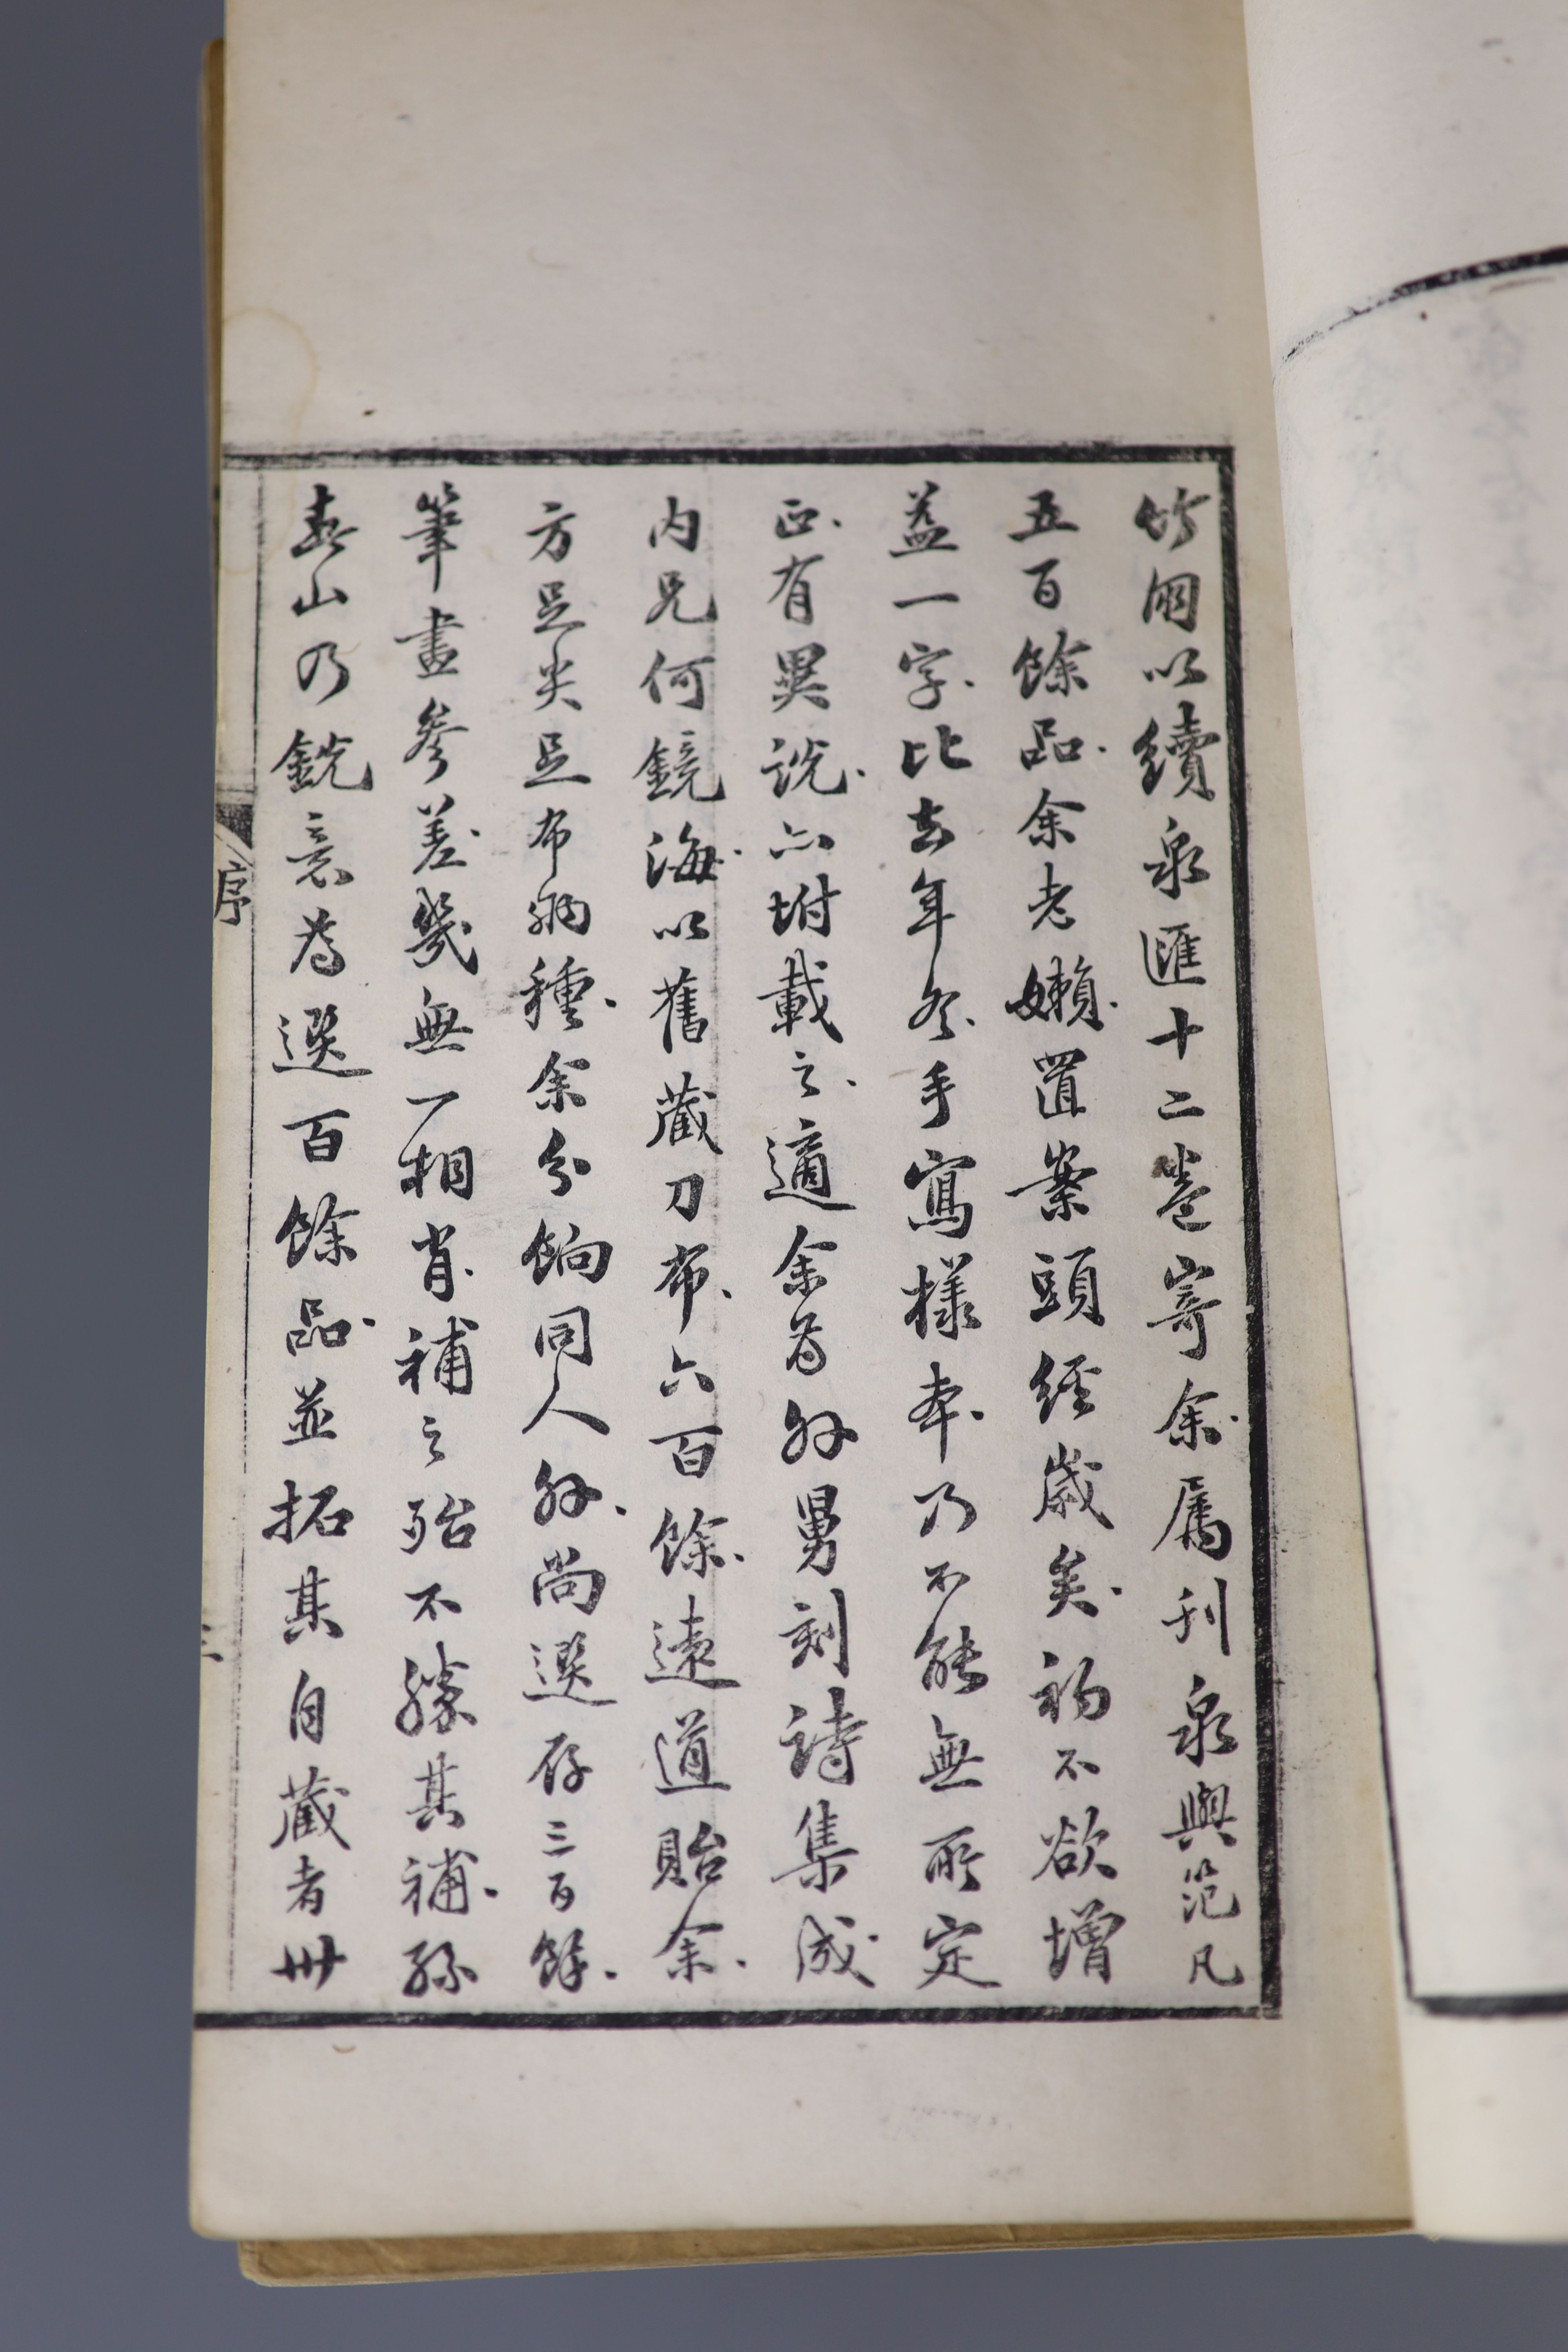 竹朋以續泉匯十二卷寄余屬刊泉與笵凡
五百餘品余老嬾置案頭經歲矣初不欲增
益一字比去年冬手寫樣本乃不能無所定
正有異說亦坿載之適余為外舅刻詩集成
内兄何鏡海以舊藏刀布六百餘遠道貽余
方足尖足布兩種余分餉同人外尚選存三百餘
筆畫參差幾無一相肖補之殆不勝其補孫
春山乃銳意為選百餘品並拓其自藏者卅
序